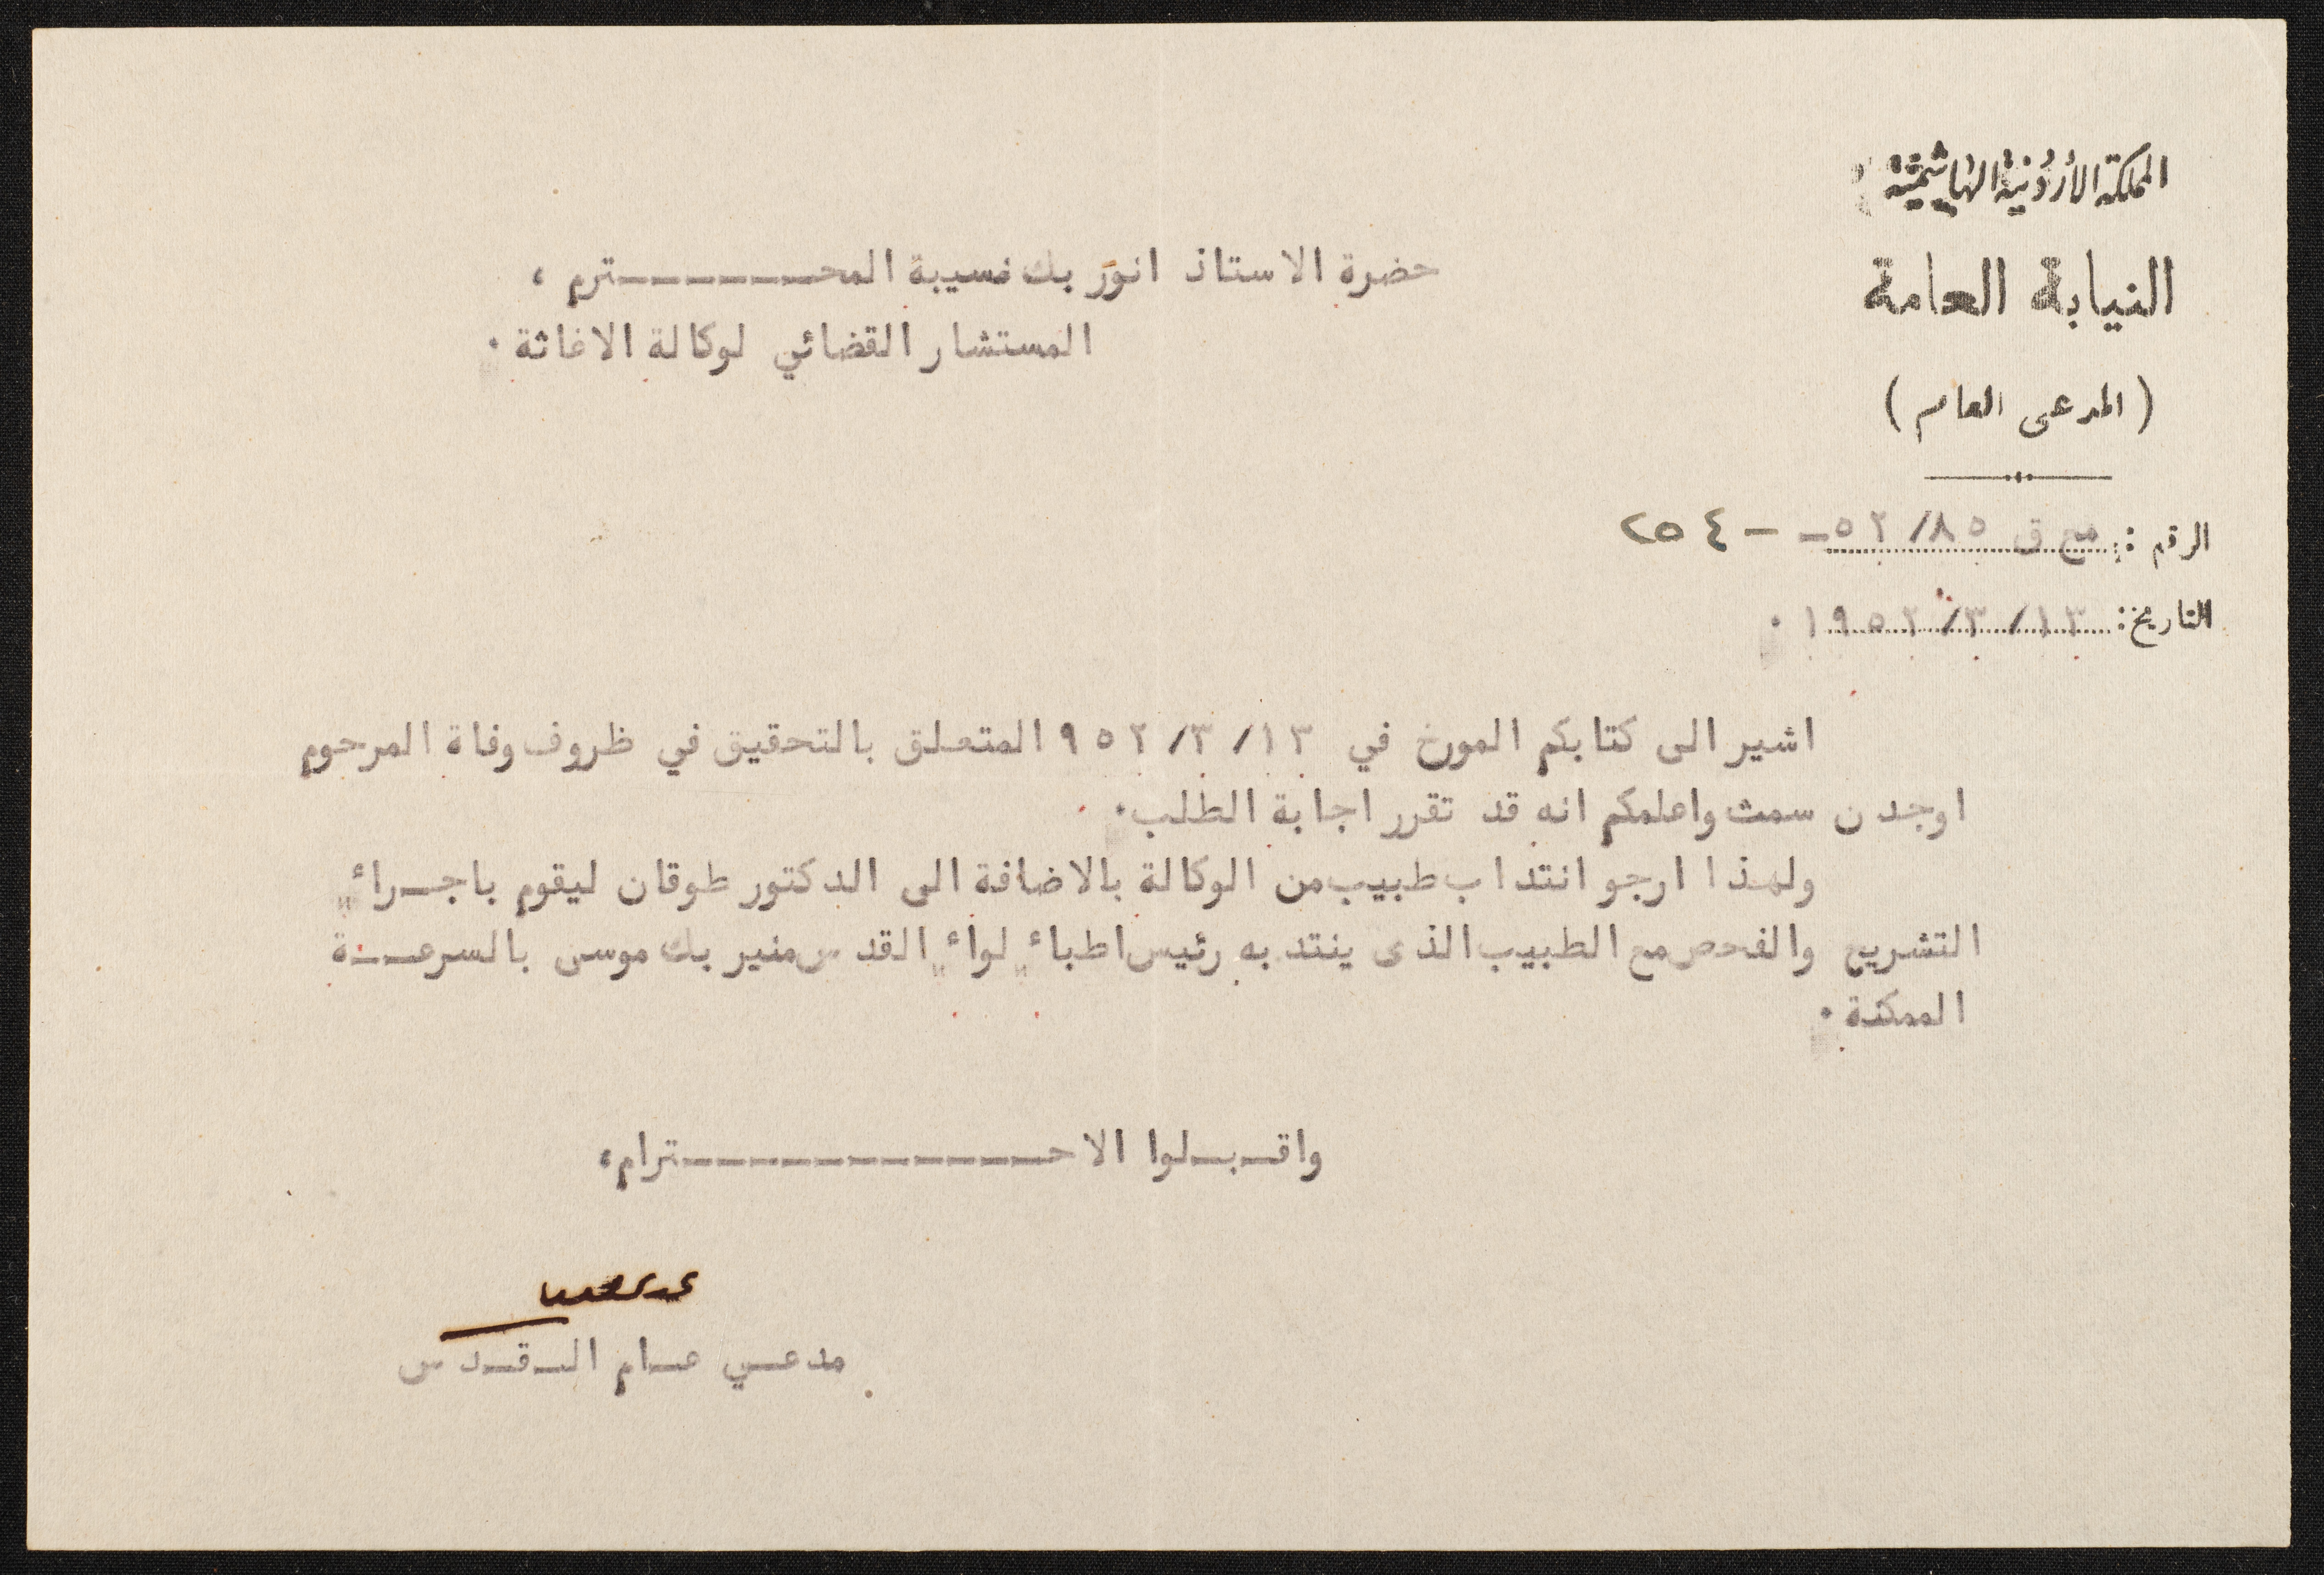 المملكة الأردنية الهاشمية
النيابة العامة
(المدعى العام)
الرقم : مع ق ٥٢/٨٥ - - ٢٥٤
التاريخ: ١٩٥٢/٣/١٣ ٠
حضرة الاستاذ انور بك نسيبة المحـــــــترم ،
المستشار القضائي لوكالة الاغاثة ٠
اشير الى كتابكم المورخ في ٩٥٢/٣/١٣ المتعلق بالتحقيق في ظروف وفاة المرحوم
اوجدن سمث واعلمكم انه قد تقرر اجابة الطلب٠
ولهذا ارجو انتداب طبيب من الوكالة بالاضافة الى الدكتور طوقان ليقوم باجـراء
التشريح والفحص مع الطبيب الذى ينتدبه رئيس اطباء لواء القدس منير بك موسى بالسرعـــة
الممكنة ٠
واقـبـلوا الاحـــــــــــــترام،
مدعـي عـام الـقـدس